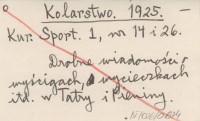 Kolarstwo. 1925. —
Kur. Sport. 1, nr 14 i 26.
Drobne wiadomości o
wyścigach, wycieczkach
itd. w Tatry i Pieniny